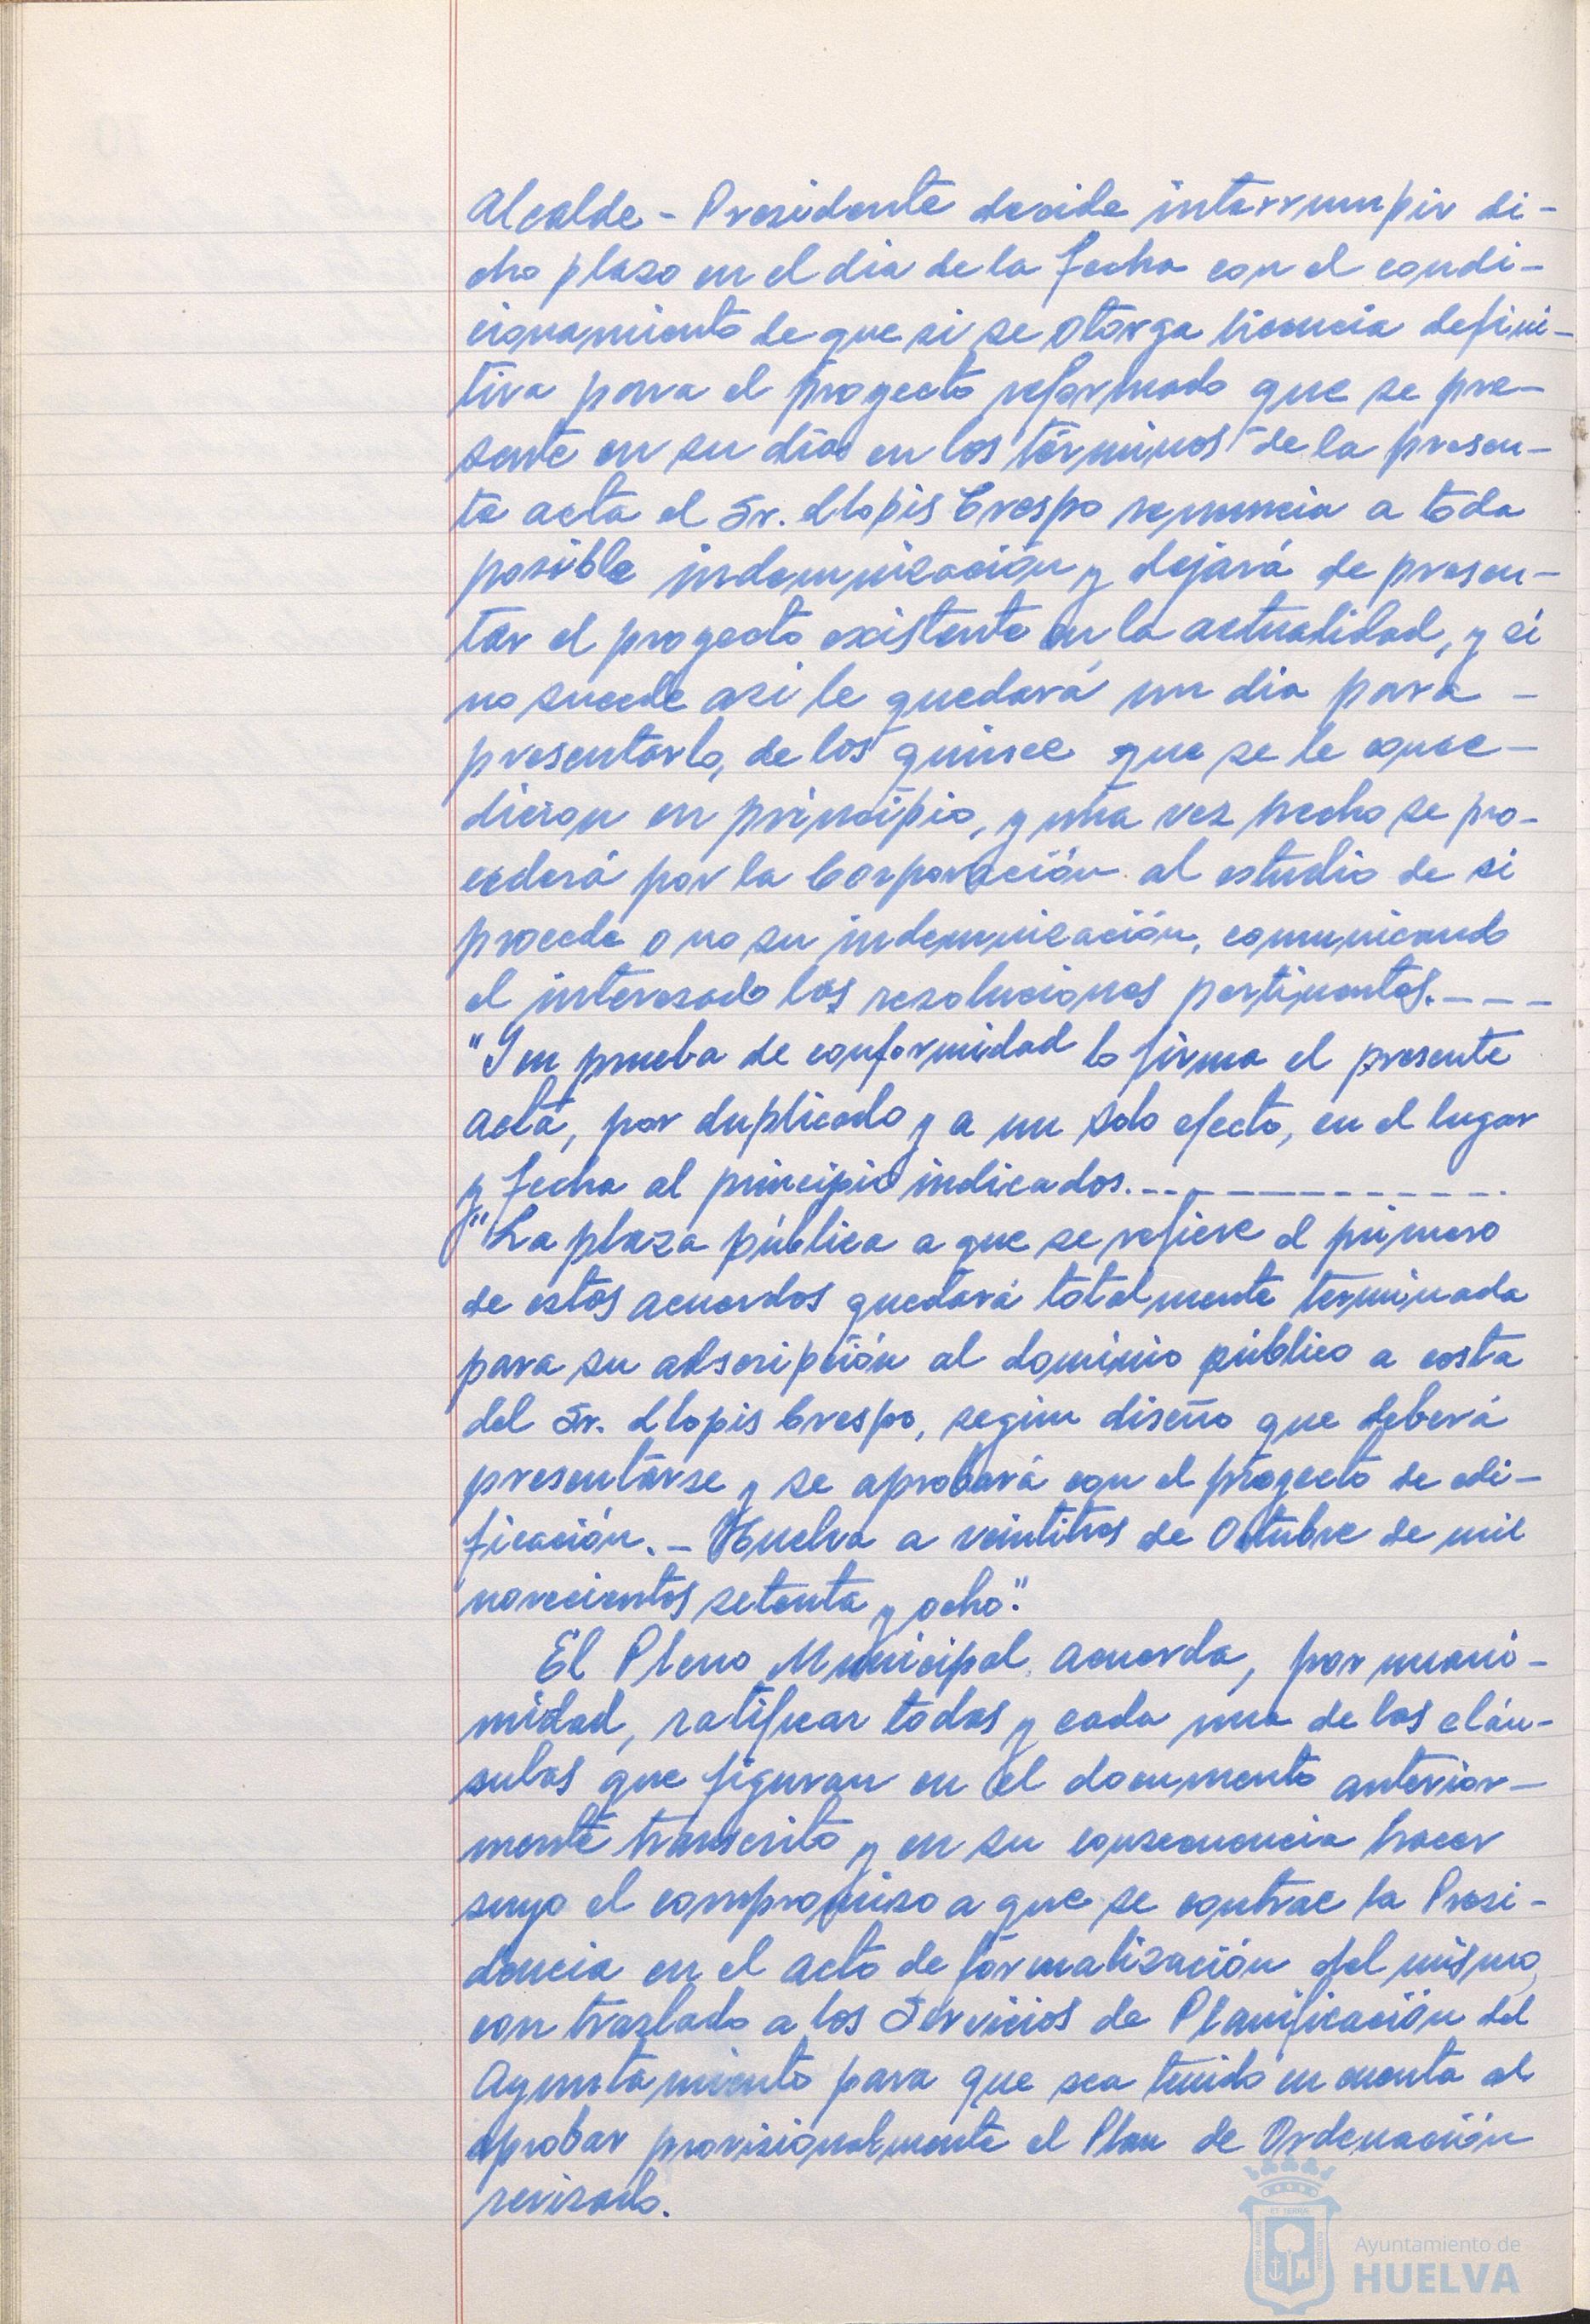 Alcalde - Presidente decide interrumpir di-
cho plazo en el dia de la fecha con el condi-
cionamiento de que si se otorga licencia defini-
tiva para el proyecto reformado que se pre-
sente en su día en los términos de la presen-
te acta el Sr. Llopis Crespo renuncia a toda
posible indemnización y dejará de presen-
tar el proyecto existente en la actualidad, y si
no sucede asi le quedará un dia para -
presentarlo, de los quince que se le conce-
dieron en principio, y una vez hecho se pro-
cederá por la Corporación al estudio de si
procede o no su indemnización, comunicando
al interesado las resoluciones pertinentes.----
"Y en prueba de conformidad lo firma el presente
acta, por duplicado y a un solo efecto, en el lugar
y fecha al principio indicados.------------
"La plaza pública a que se refiere el primero
de estos acuerdos quedará totalmente terminada
para su adscripción al dominio público a costa
del Sr. Llopis Crespo, según diseño que deberá
presentarse y se aprobará con el proyecto de edi-
ficación.- Huelva a veintitres de Octubre de mil
novecientos setenta y ocho".
El Pleno Municipal acuerda, por unani-
midad, ratificar todas y cada una de las cláu-
sulas que figuran en el documento anterior-
mente transcrito y en su consecuencia hacer
suyo el compromiso a que se contrae la Presi-
dencia en el acto de formalización del mismo,
con traslado a los Servicios de Planificación del
Ayuntamiento para que sea tenido en cuenta al
aprobar provisionalmente el Plan de Ordenación
revisado.
Ayuntamiento de
HUELVA